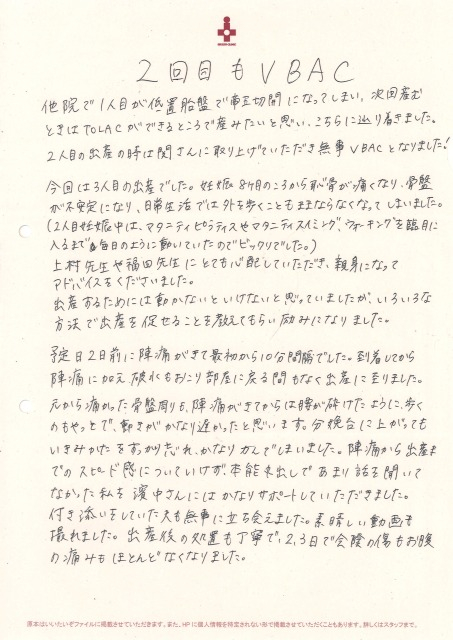 2回目もVBAC
他院で1人目が低置胎盤で帝王切開になってしまい、次回産む
ときはTOLACができるところで産みたいと思い、こちらに辿り着きました。
2人目の出産の時は関さんに取り上げていただき無事VBACとなりました!
今回は3人目の出産でした。妊娠8ヶ月のころから恥骨が痛くなり、骨盤
が不安定になり、日常生活では外を歩くこともままならなくなってしまいました。
(2人目妊娠中は、マタニティピラティスやマタニティスイミング、ウォーキングを臨月に
入るまで毎日のように動いていたのでビックリでした。)
上村先生や福田先生にとても心配していただき、親身になって
アドバイスをくださいました。
出産するためには動かないといけないと思っていましたが、いろいろな
方法で出産を促せることを教えてもらい励みになりました。
予定日2日前に陣痛がきて最初から10分間隔でした。到着してから
陣痛に加え、破水もおこり部屋に戻る間もなく出産に至りました。
元から痛かった骨盤周りも、陣痛がきてからは腰が砕けたように、歩く
のもやっとで、動きがかなり遅かったと思います。分娩台に上がっても
いきみかたをすっかり忘れ、かなり力んでしまいました。陣痛から出産ま
でのスピード感についていけず、本能を出してあまり話を聞いて
なかった私を濱中さんにはかなりサポートしていただきました。
付き添いをしていた夫も無事に立ち会えました。素晴しい動画も
撮れました。出産後の処置も丁寧で、2,3日で会陰の傷もお腹
の痛みもほとんどなくなりました。
原本はいいたいぞファイルに掲載させていただきます。また、HPに個人情報を特定されない形で掲載させていただくこともあります。詳しくはスタッフまで。